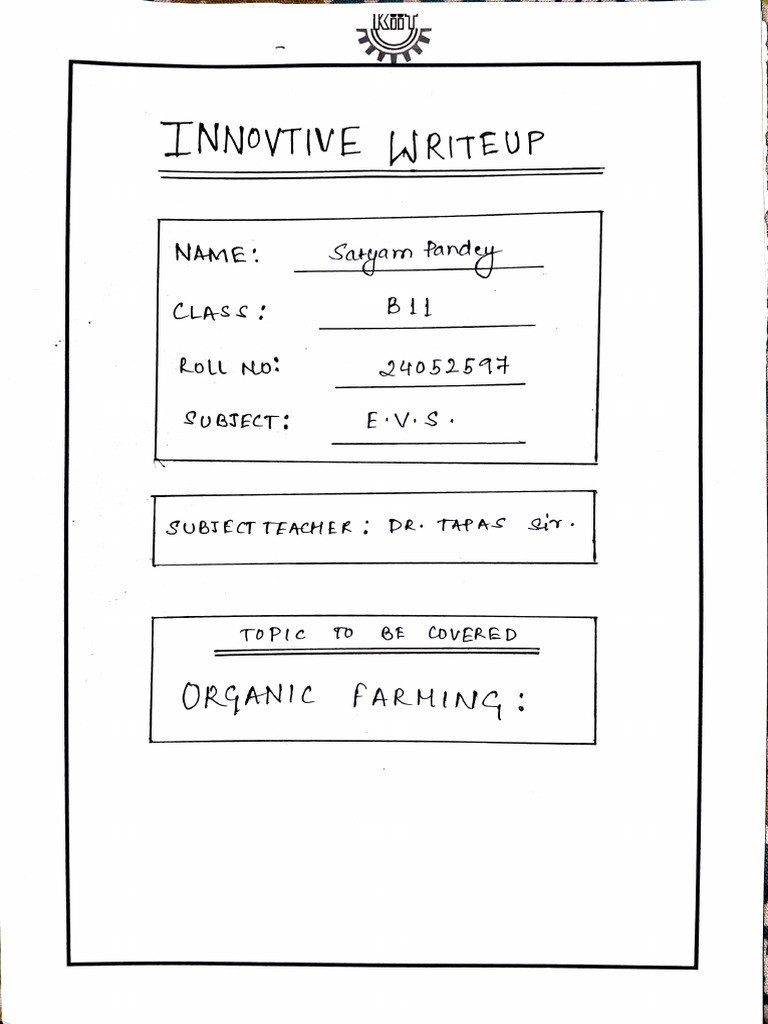 KiiT
INNOVTIVE WRITEUP
NAME: Satyam Pandey
CLASS: B11
ROLL NO: 24052597
SUBJECT: E.V.S.
SUBJECT TEACHER: DR. TAPAS Sir.
TOPIC TO BE COVERED
ORGANIC FARMING: